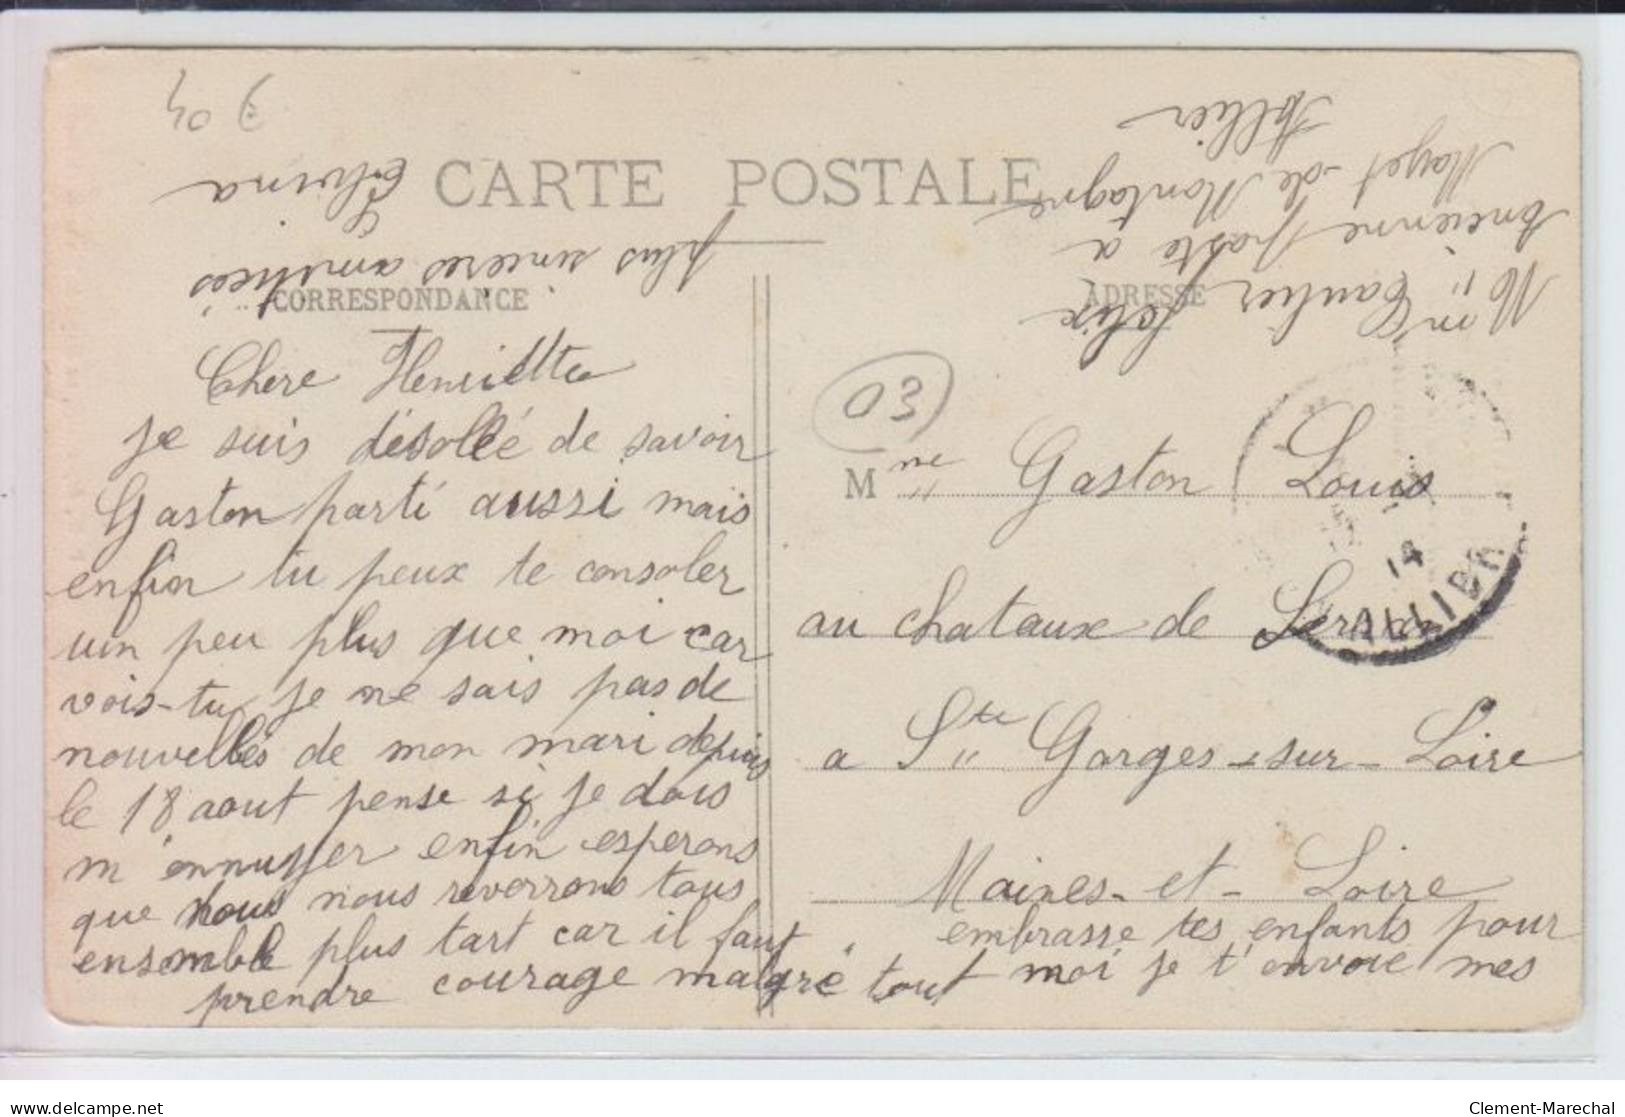 CARTE POSTALE
CORRESPONDANCE
ADRESSE
Chere Henriette
je suis désollée de savoir
Gaston parti aussi mais
enfin tu peux te consoler
un peu plus que moi car
vois-tu je ne sais pas de
nouvelles de mon mari depuis
le 18 aout pense si je dois
m'ennuyer enfin esperons
que nous nous reverrons tous
ensemble plus tart car il faut
prendre courage malgré tout
embrasse tes enfants pour
moi je t'envoie mes
plus sincères amitiées
Elvina
03
Mme Gaston Louis
au chataux de
a Ste Gorges-sur-Loire
Maines-et-Loire
14
ALLIER
Mon Gautier Felix
Ancienne poste a
Mayet-de Montagne
Allier
904
Clement-Marechal